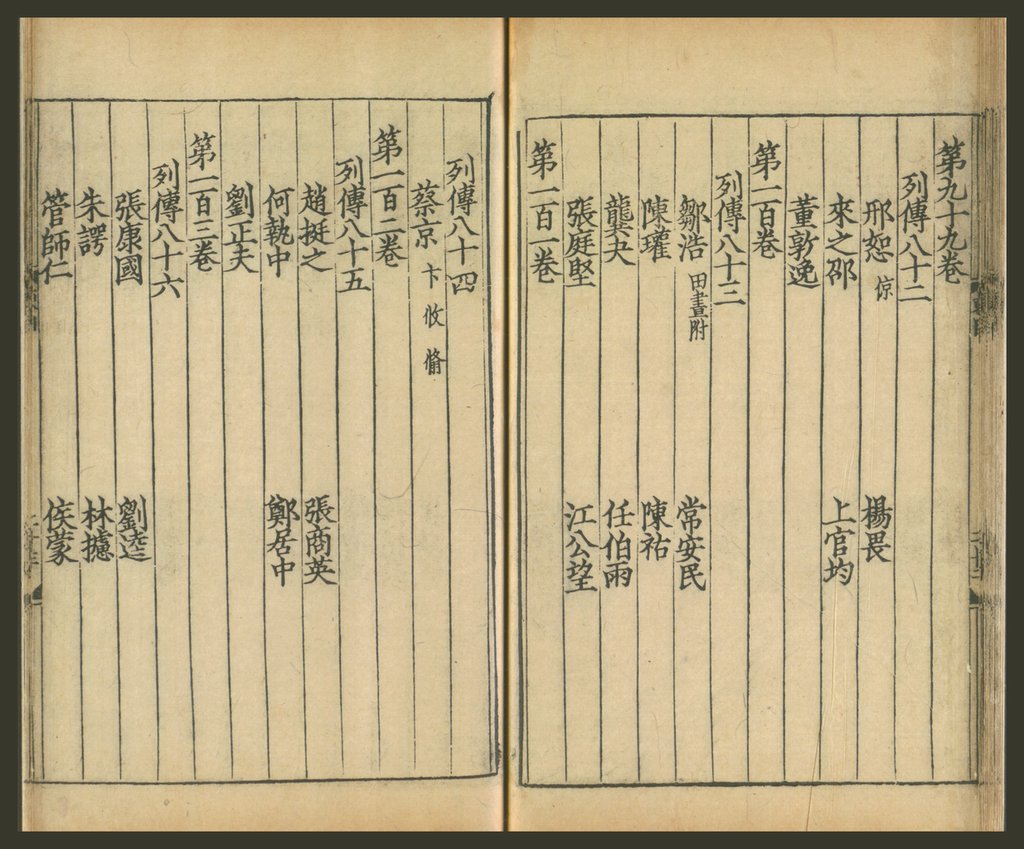 第九十九卷
列傳八十二
邢恕 倞 楊畏
來之邵 上官均
董敦逸
第一百卷
列傳八十三
鄒浩 田晝附 常安民
陳瓘 陳祐
龔夬 任伯雨
張庭堅 江公望
第一百一卷
列傳八十四
蔡京 卞 攸 翛
第一百二卷
列傳八十五
趙挺之 張商英
何執中 鄭居中
劉正夫
第一百三卷
列傳八十六
張康國 劉逵
朱諤 林攄
管師仁 侯蒙